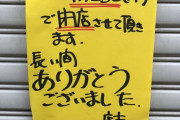 で閉店させて頂き
ます.
長い間
ありがとう
ございました.